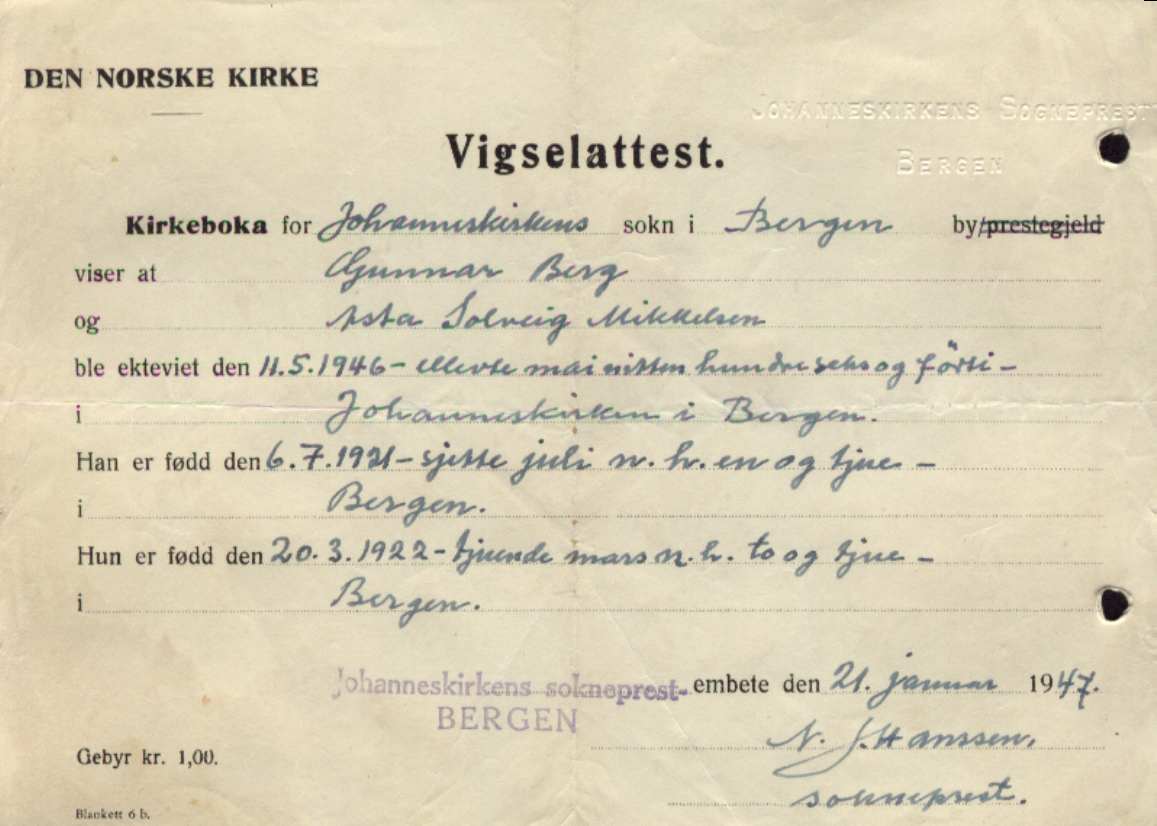 DEN NORSKE KIRKE
JOHANNESKIRKENS SOGNEPREST
BERGEN
Vigselattest.
Kirkeboka for Johanneskirkens sokn i Bergen by/prestegjeld
viser at Gunnar Berg
og Asta Solveig Mikkelsen
ble ekteviet den 11.5.1946 - ellevte mai nitten hundre seks og førti -
i Johanneskirken i Bergen.
Han er født den 6.7.1921 - sjette juli n. h. en og tjue -
i Bergen.
Hun er født den 20.3.1922 - tjuende mars n. h. to og tjue -
i Bergen.
Johanneskirkens sokneprest- embete den 21. januar 1947.
BERGEN
N. J. Hanssen.
Gebyr kr. 1,00.
sokneprest.
Blankett 6 b.